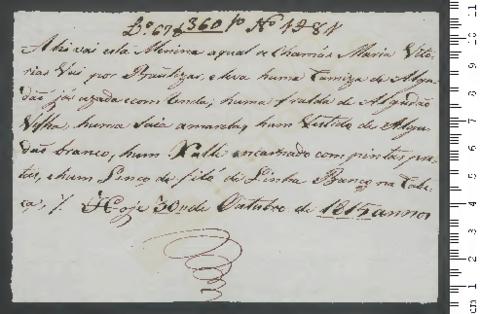 Lº 67 f 360 pº Nº 1984
Ahi vai esta Menina aqual se chamás Maria Vitó
rias Vai por Bautizar, e leva huma Camiza de Algu
dão já uzada com renda, huma fralda de Algudão
Velha, huma Saia amarela, hum Vestido de Algu
dão branco, hum Xalle encarnado com pintas pre
tas, e hum Lenço de filó de Linha Branco na Cabe
ça, /. Hoje 30 de Outubro de 1815 annos